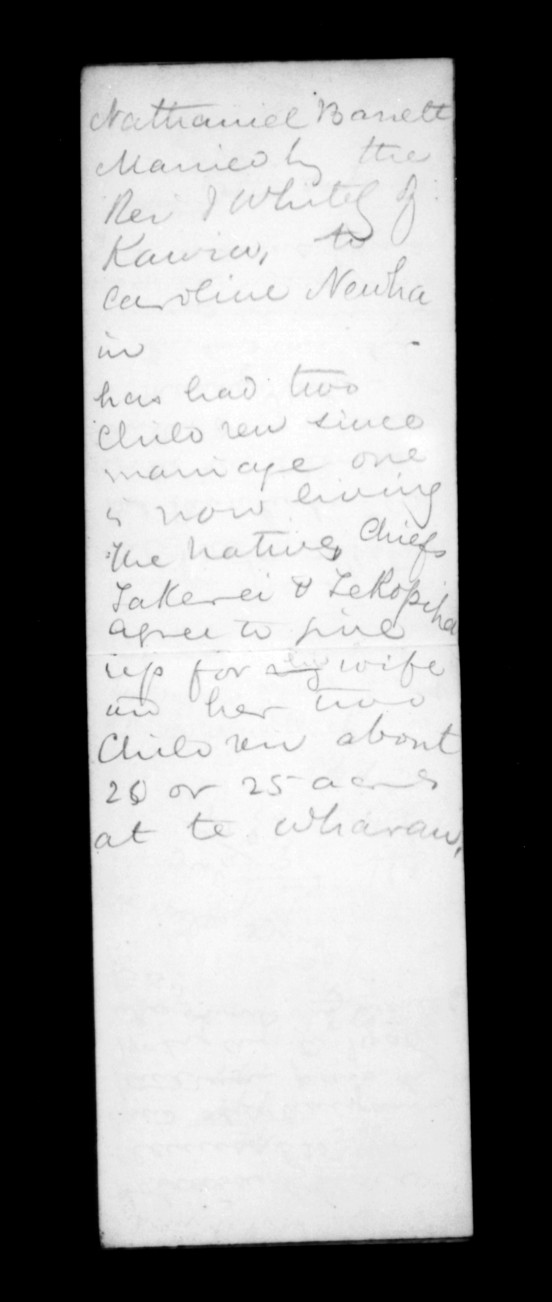 Nathaniel Barrett
Married by the
Rev J Whitely of
Kawia, to
Caroline Newha
in
has had two
Children since
marriage one
is now living
The Natives Chiefs
Takerei & TeKopiha
agree to give
up for my his wife
and her two
Children about
20 or 25 acres
at te Wharau,